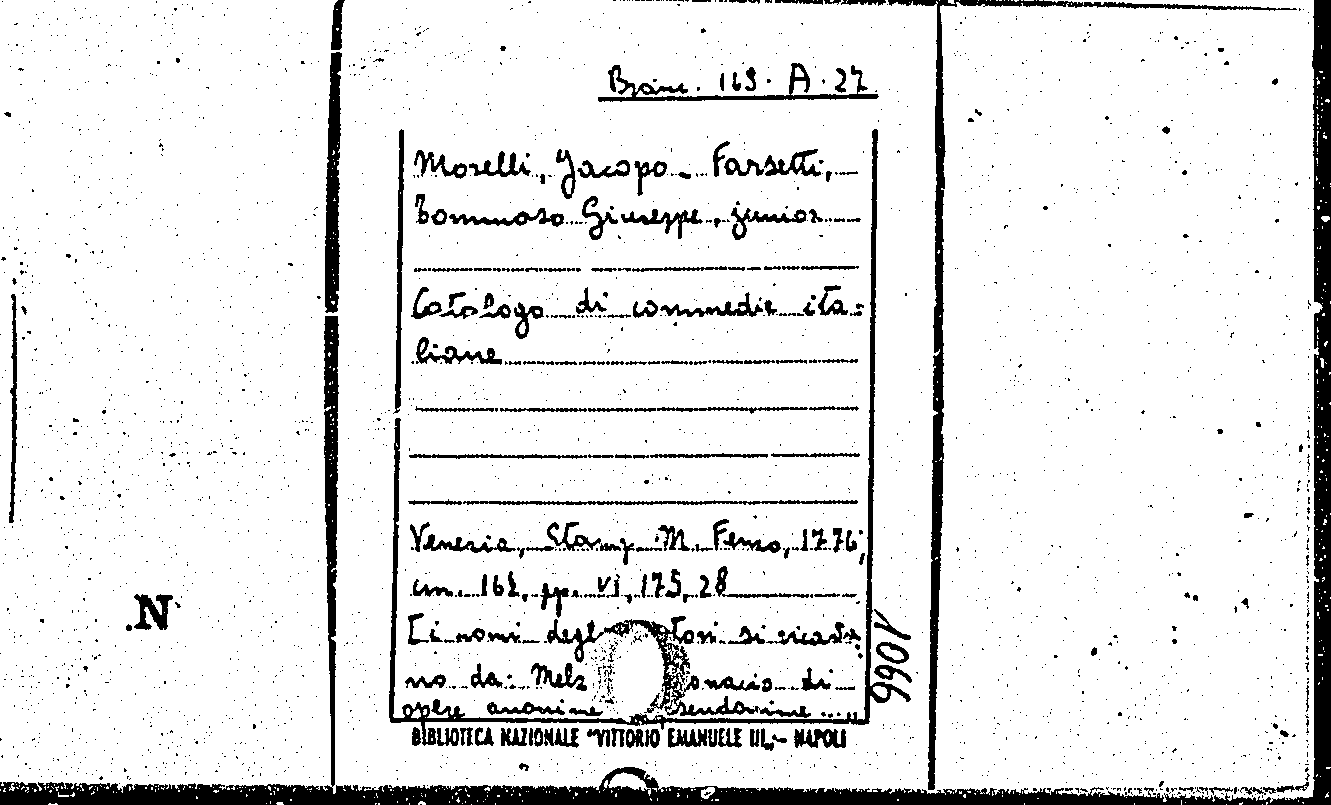 Branc. 169. A. 27
Morelli, Jacopo - Farsetti,
Tommaso Giuseppe, junior
Catalogo di commedie ita=
liane
Venezia, Stamp. M. Fenzo, 1776,
cm. 16½, pp. VI, 175, 28
[i nomi degl tori si ricava
no da: Melz onacio di
opere anonime seudonime ...„
1066
BIBLIOTECA NAZIONALE "VITTORIO EMANUELE III„ - NAPOLI
.N